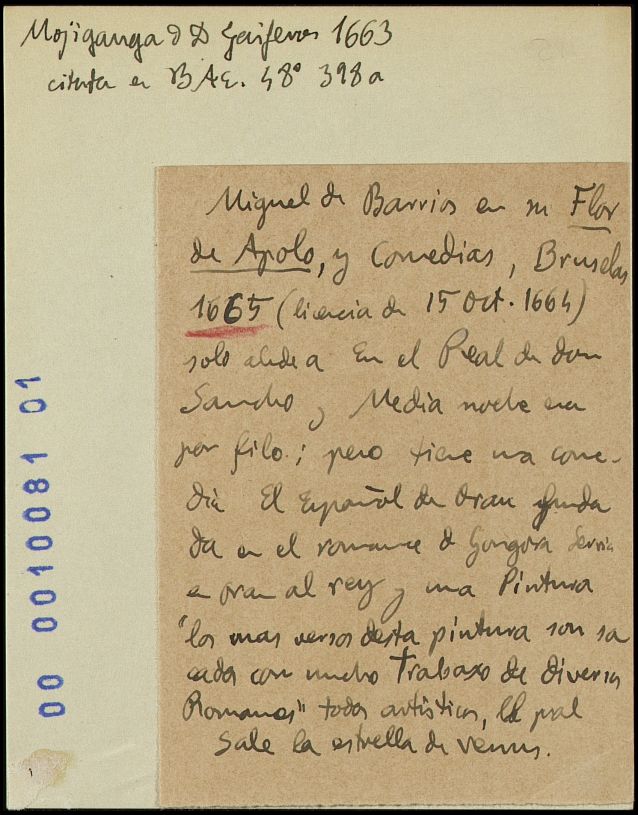 Mojiganga d D Gaiferos 1663
citada en BAE. 48º 398a
Miguel de Barrios en su Flor
de Apolo, y Comedias, Bruselas
1665 (licencia de 15 Oct. 1664)
solo alude a En el Real de don
Sancho y Media noche era
por filo; pero tiene una come-
dia El Español de Oran funda
da en el romance d Gongora Servia
en oran al rey y una Pintura
"los mas versos desta pintura son sa
cados con mucho Trabaxo de diversos
Romances" todos artísticos,
Sale la estrella de venus.
00 0010081 01